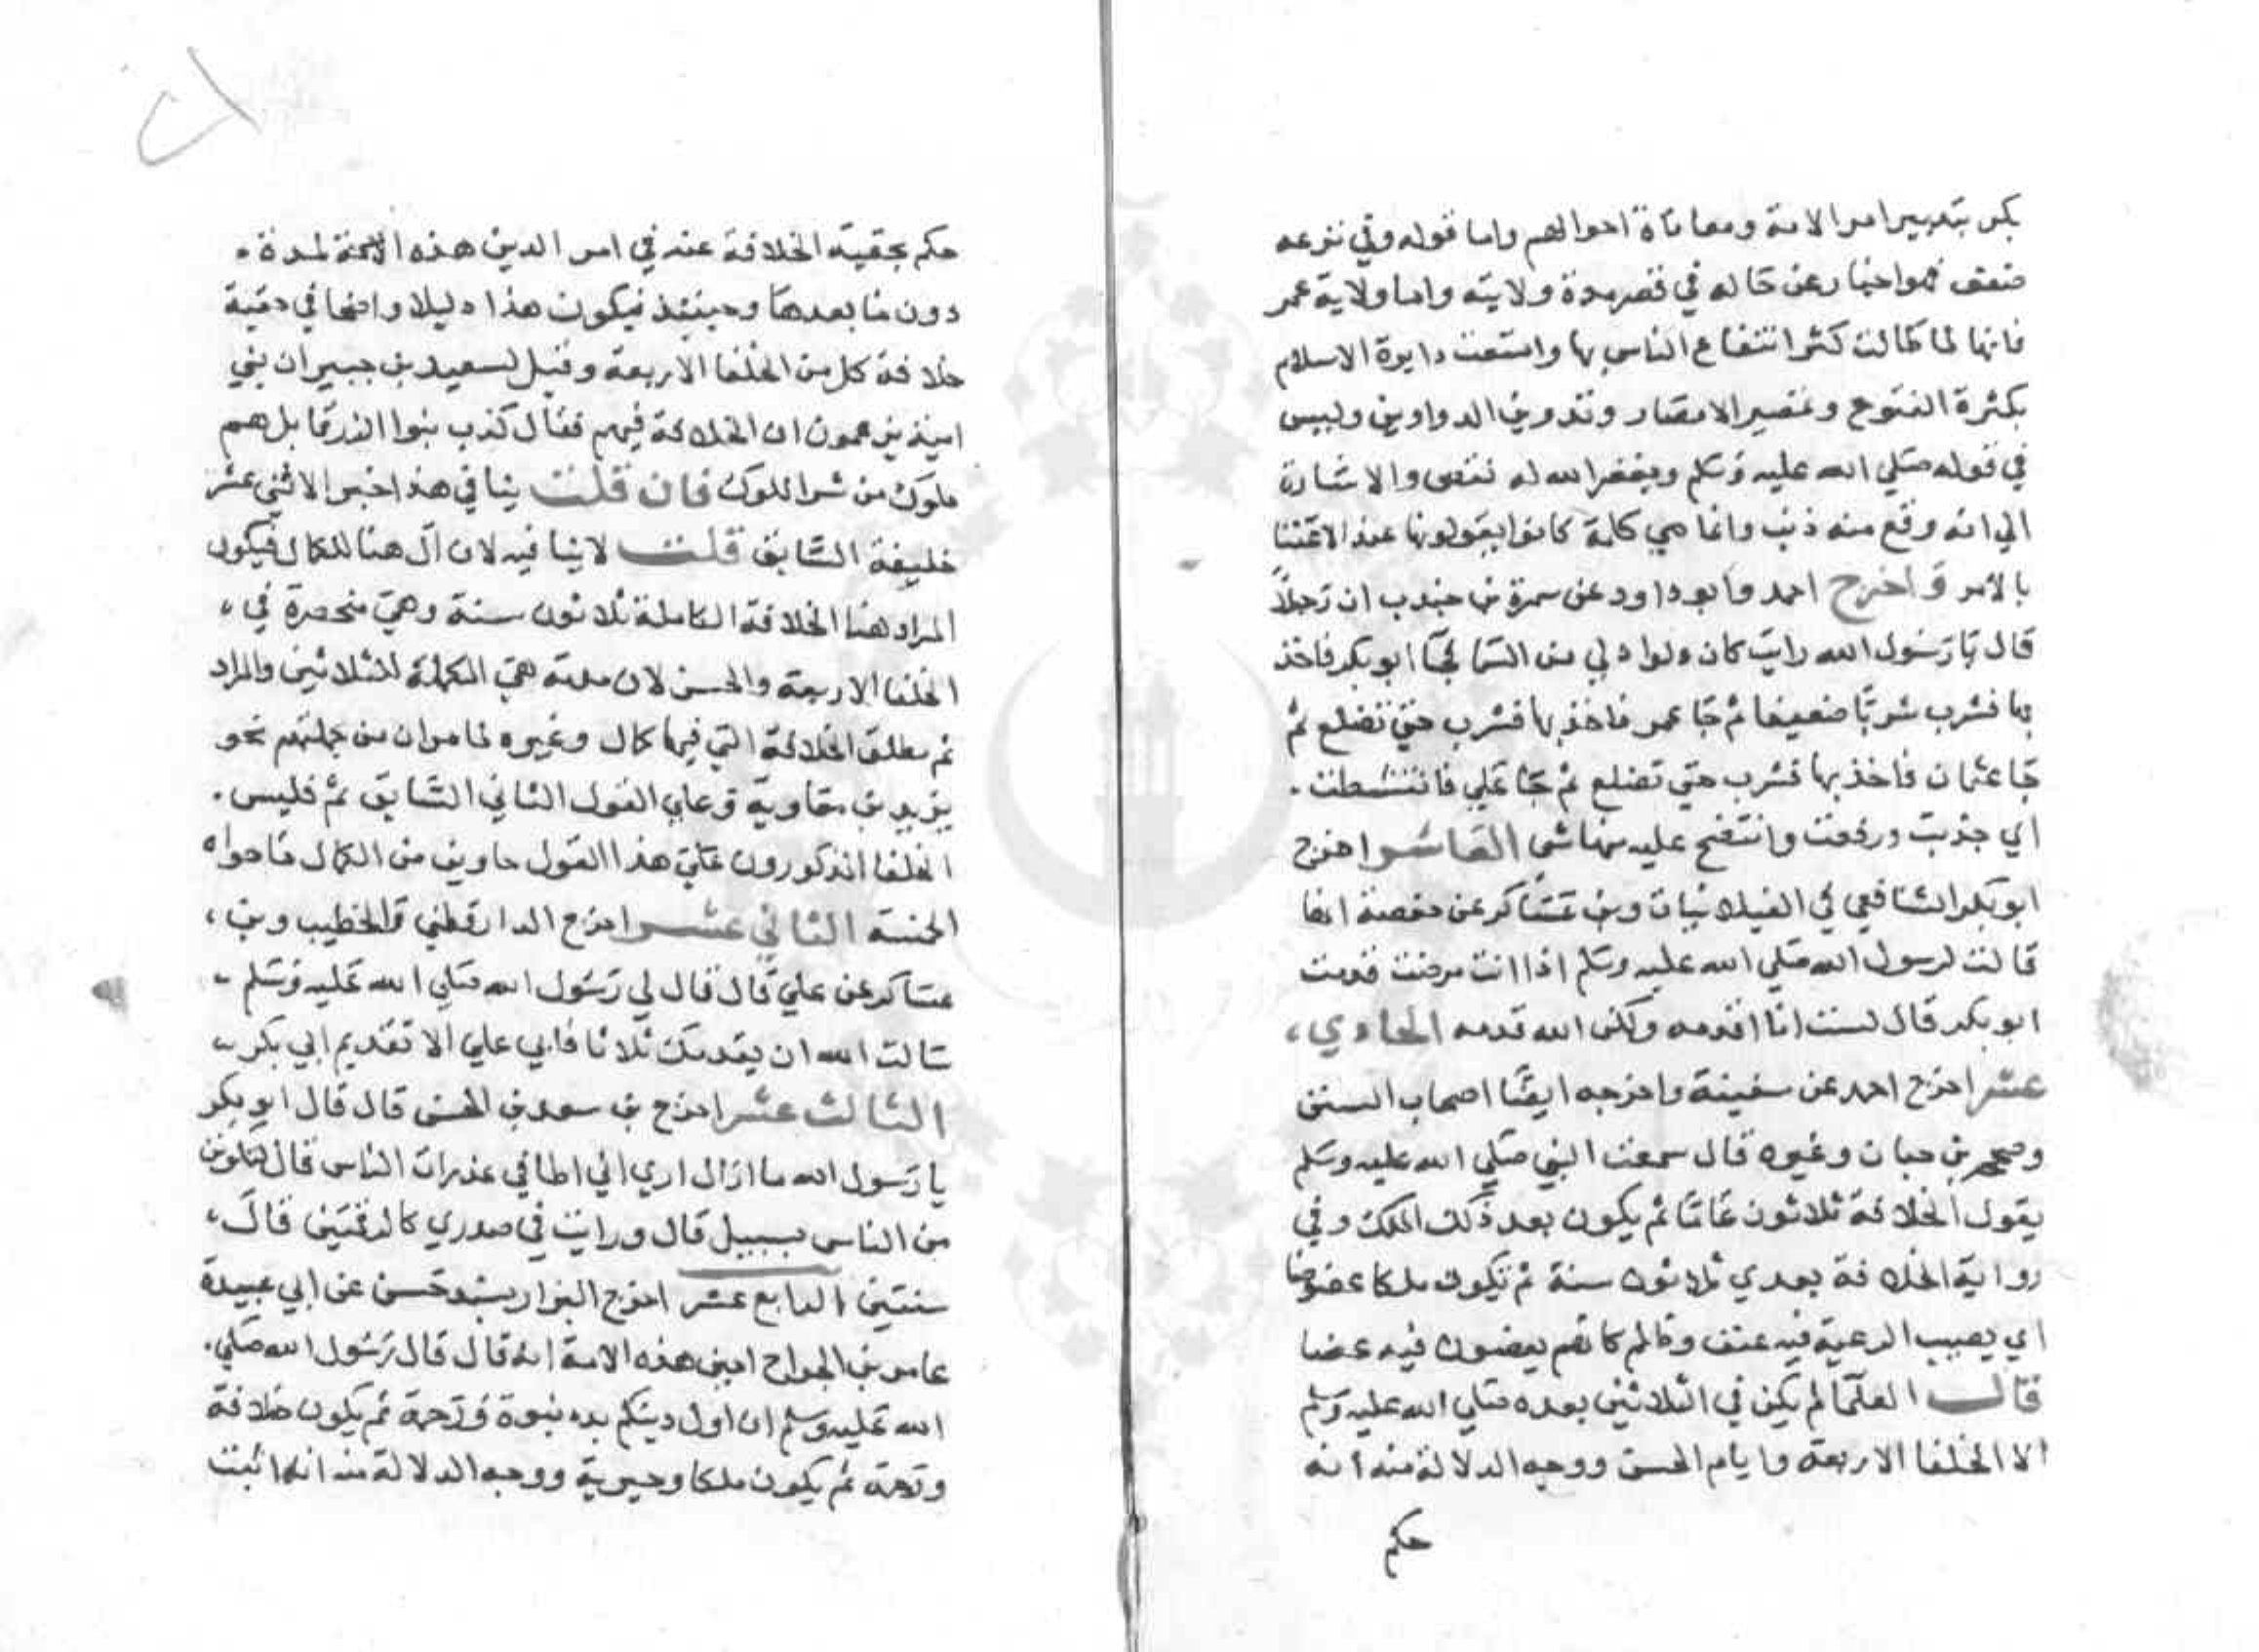 بكر بتدبير امر الامة ومعاناة احوالهم واما قوله وفي نزعه
ضعف فهو اخبار عن حاله في قصر مدة ولايته واما ولاية عمر
فانها لما طالت كثر انتفاع الناس بها واتسعت دايرة الاسلام
بكثرة الفتوح وتمصير الامصار وتدوين الدواوين وليس
في قوله صلي الله عليه وسلم ويغفر الله له نقص والا اشارة
الي انه وقع منه ذنب وانما هي كلمة كانوا يقولونها عند الاعتنا
بالامر واخرج احمد وابو داود عن سمرة بن جندب ان رجلاً
قال يا رسول الله رايت كان دلوا دلي من السما فجا ابو بكر فاخذ
بها فشرب شربا ضعيفا ثم جا عمر فاخذ بها فشرب حتي تضلع ثم
جا عثمان فاخذ بها فشرب حتي تضلع ثم جا علي فانتشطت.
اي جذبت ورفعت وانتضح عليه منها شي العاشر اخرج
ابو بكر الشافعي في الغيلانيات وبن عساكر عن حفصة انها
قالت لرسول الله صلي الله عليه وسلم اذا انت مرضت قدمت
ابو بكر قال لست انا اقدمه ولكن الله قدمه الحادي،
عشر اخرج احمد عن سفينة واخرجه ايضا اصحاب السنن
وصححه بن حبان وغيره قال سمعت النبي صلي الله عليه وسلم
يقول الخلافة ثلاثون عاما ثم يكون بعد ذلك الملك وفي
رواية الخلافة بعدي ثلاثون سنة ثم تكون ملكا عضوضا
اي يصيب الرعية فيه عنف وظلم كانهم يعضون فيه عضا
قالت العلما لم يكن في الثلاثين بعده صلي الله عليه وسلم
الا الخلفا الاربعة وايام الحسن ووجه الدلالة منه انه
حكم
حكم بحقية الخلافة عنه في امر الدين هذه المدة.
دون ما بعدها وحينئذ فيكون هذا دليلا واضحا في حقية
خلافة كل من الخلفا الاربعة وقيل لسعيد بن جبير ان بني
امية يزعمون ان الخلافة فيهم فقال كذب بنوا الزرقا بل هم
ملوك من شر الملوك فان قلت ينافي هذا خبر الاثني عشر
خليفة السابق قلت لا ينافيه لان ال هنا للكمال فيكون
المراد هنا الخلافة الكاملة ثلاثون سنة وهي منحصرة في،
الخلفا الاربعة والحسن لان مدته هي المكملة للثلاثين والمراد
ثم مطلق الخلافة التي فيها كمال وغيره لما مر ان من جملتهم نحو
يزيد بن معاوية وعلي القول الثاني السابق ثم فليس.
الخلفا المذكورون علي هذا القول حاوين من الكمال ما حواه
الخمسة الثاني عشر اخرج الدارقطني والخطيب وبن،
عساكر عن علي قال قال لي رسول الله صلي الله عليه وسلم
سالت الله ان يقدمك ثلاثا فابي علي الا تقديم ابي بكر
الثالث عشر اخرج بن سعد بن الحسن قال قال ابو بكر
يا رسول الله ما ازال اري اني اطا في عذرات الناس قال لتكونن
من الناس بسبيل قال ورايت في صدري كالرقمتين قال،
سنتين الرابع عشر اخرج البزار بسند حسن عن ابي عبيدة
عامر بن الجراح امين هذه الامة انه قال قال رسول الله صلي.
الله عليه وسلم ان اول دينكم بده نبوة ورحمة ثم يكون خلافة
ورحمة ثم يكون ملكا وجبرية ووجه الدلالة منه انه اثبت